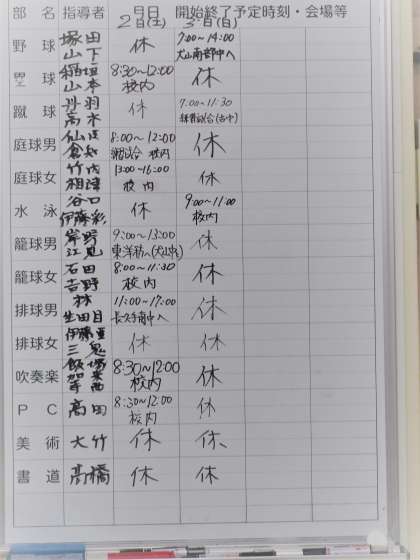 部 名 指導者 月日 開始終了予定時刻・会場等
2日(土) 3日(日)
野 球 塚田 山下 休 7:00〜14:00 犬山南部中へ
塁 球 稲垣 山本 8:30〜12:00 校内 休
蹴 球 丹羽 高木 休 7:00〜11:30
庭球男 8:00〜12:00 校内 休
庭球女 竹内 相津 13:00〜16:00 校内 休
水 泳 谷口 伊藤彩 休 9:00〜11:00 校内
籠球男 岸野 江見 9:00〜13:00 休
籠球女 石田 吉野 8:00〜11:30 校内 休
排球男 林 生田目 11:00〜17:00 長久手南中へ 休
排球女 伊藤亜 三鬼 休 休
吹奏楽 飯場 8:30〜12:00 校内 休
P C 高田 8:30〜12:00 校内 休
美 術 大竹 休 休
書 道 高橋 休 休